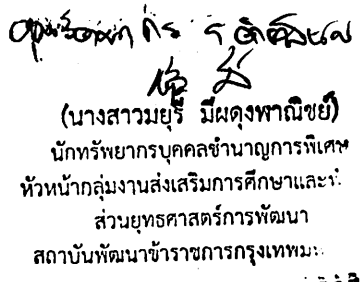 (นางสาวมยุรี มีผดุงพาณิชย์)
นักทรัพยากรบุคคลชำนาญการพิเศษ
หัวหน้ากลุ่มงานส่งเสริมการศึกษาและ
ส่วนยุทธศาสตร์การพัฒนา
สถาบันพัฒนาข้าราชการกรุงเทพม